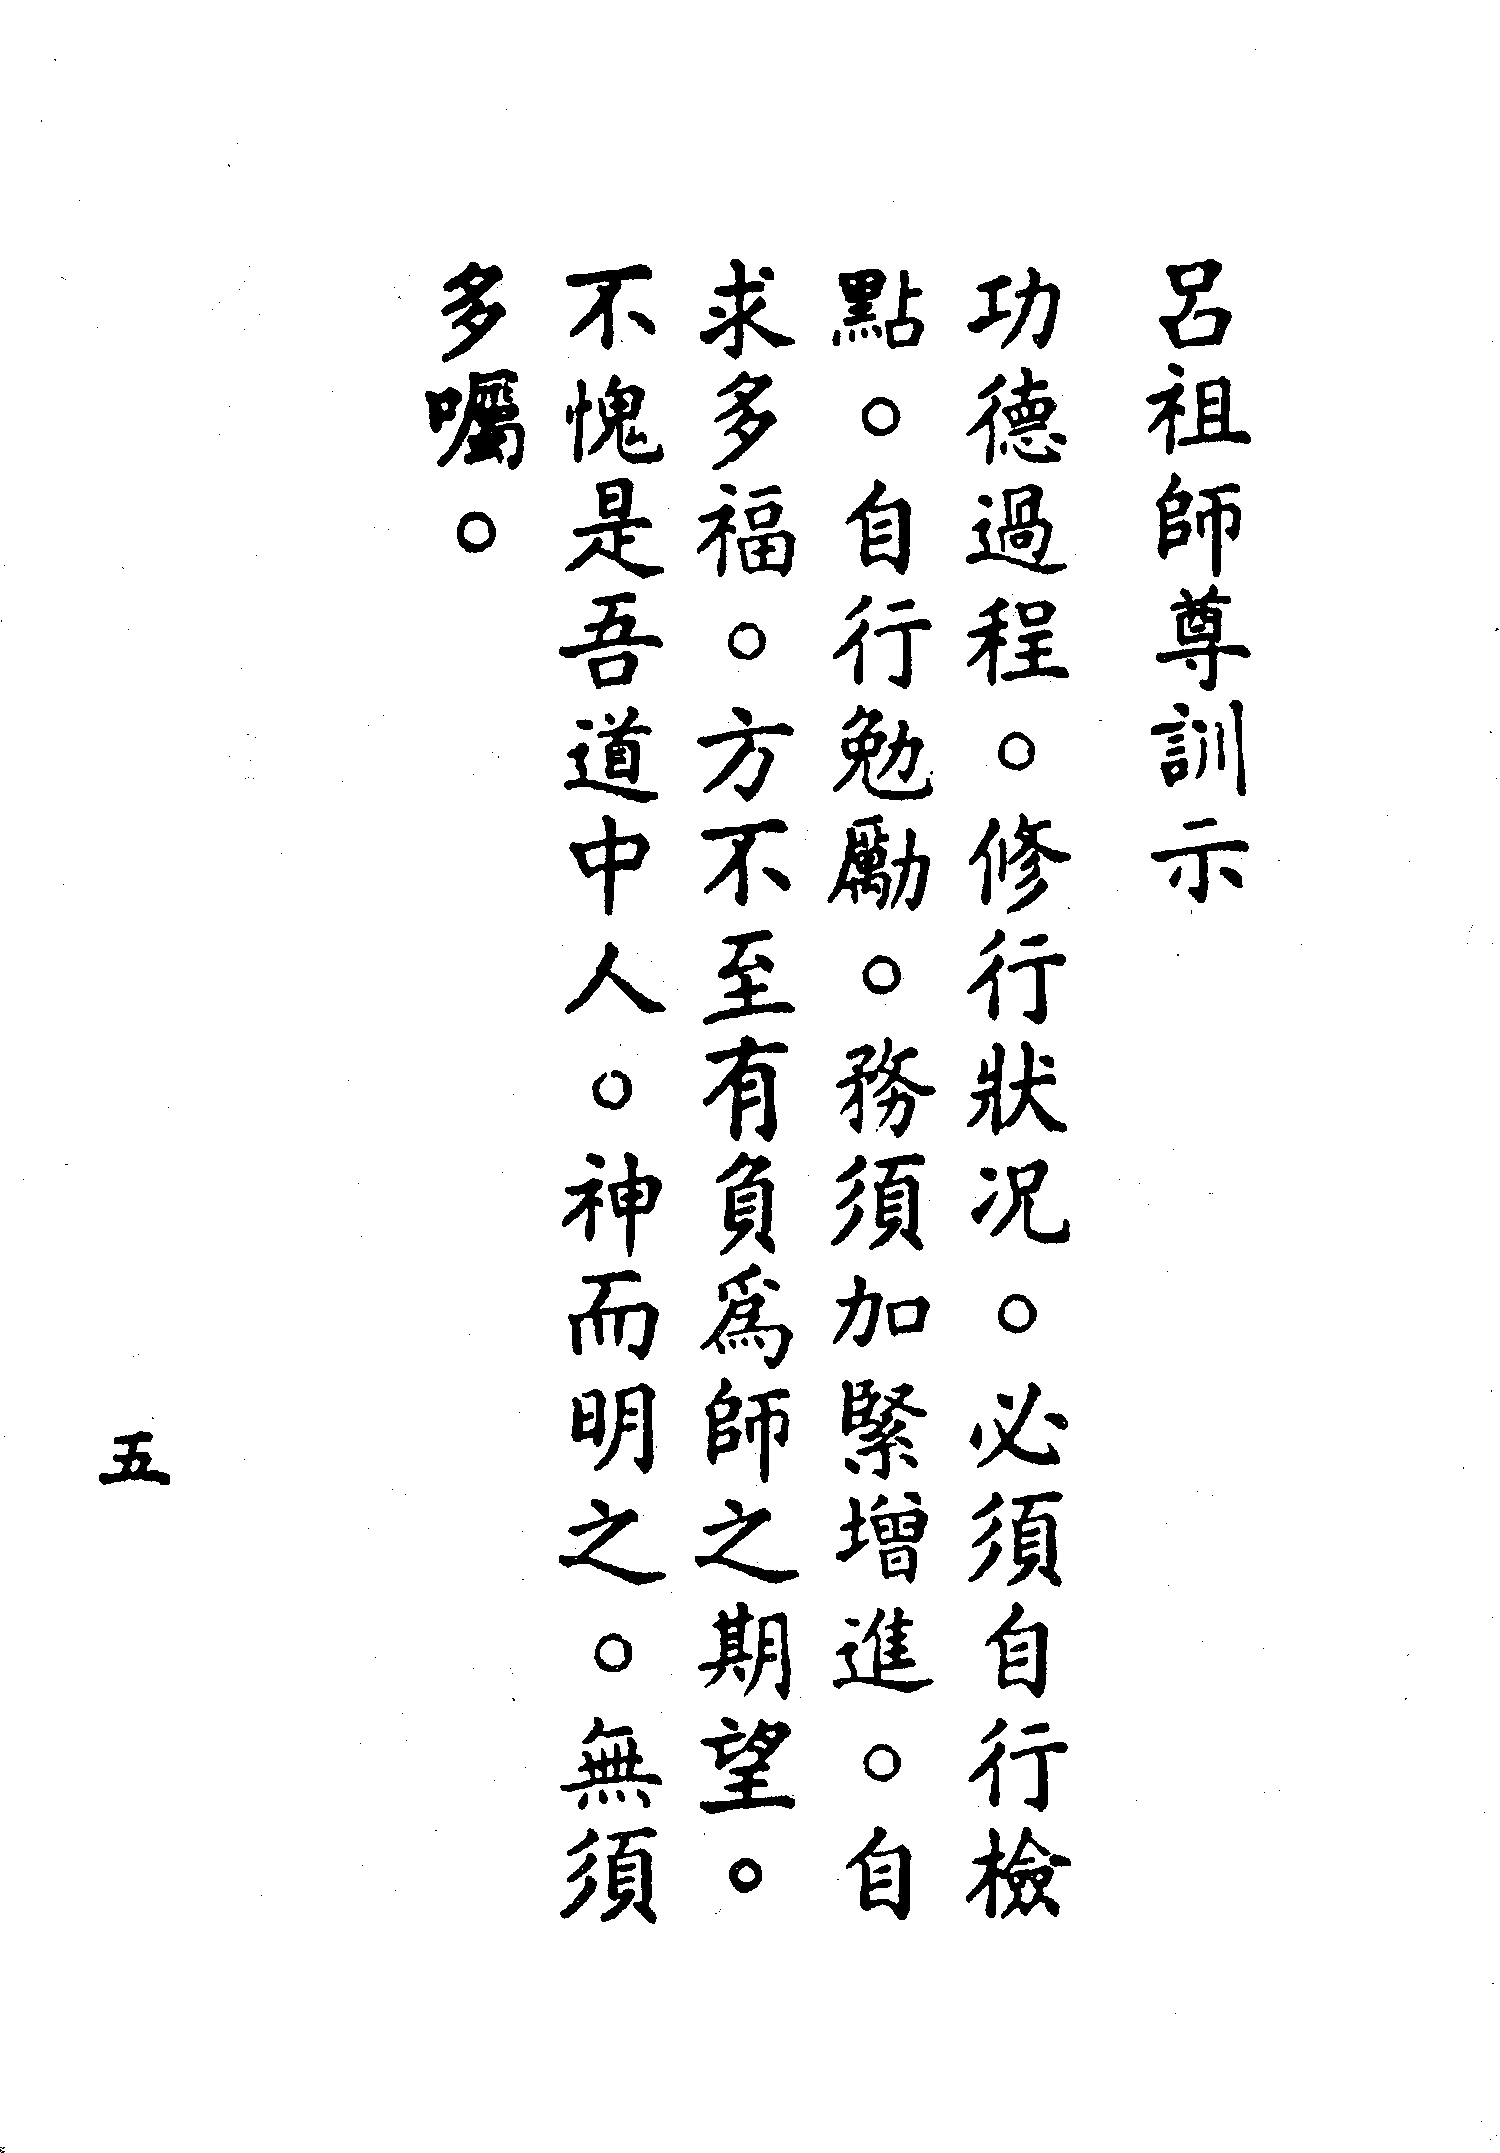 呂祖師尊訓示
功德過程。修行狀況。必須自行檢
點。自行勉勵。務須加緊增進。自
求多福。方不至有負爲師之期望。
不愧是吾道中人。神而明之。無須
多囑。
五